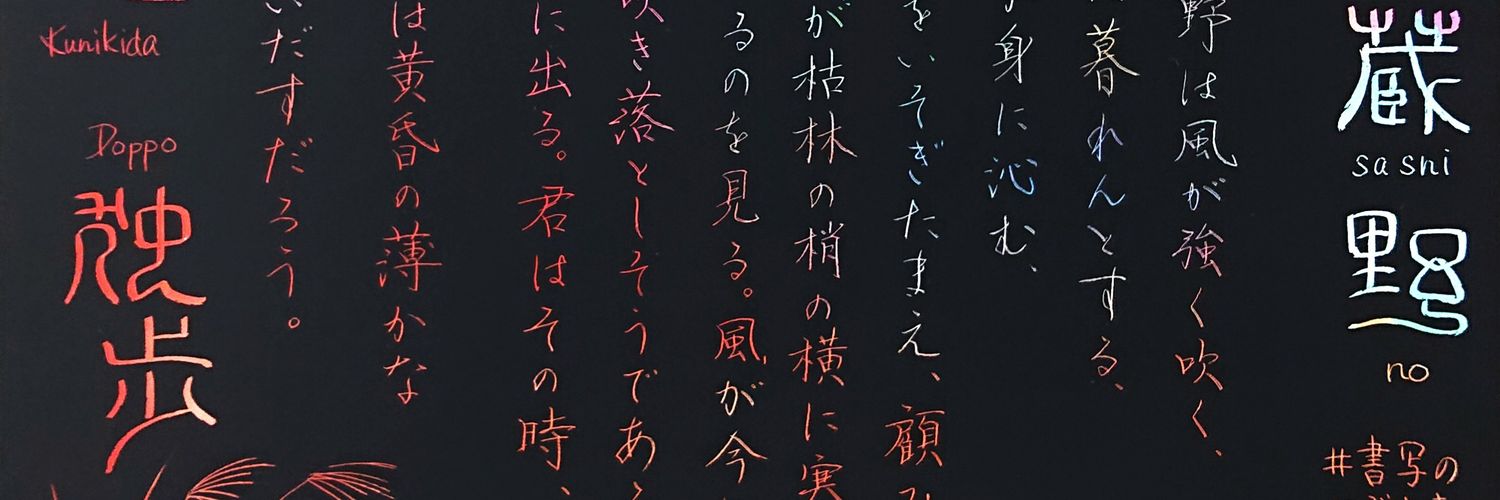 蔵
sashi
野
no
#書写の
野は風が強く吹く、
暮れんとする、
身に沁む、
をいそぎたまえ、顧み
が枯林の梢の横に実
るのを見る。風が今
吹き落としそうであ
に出る。君はその時、
は黄昏の薄かな
いだすだろう。
Kunikida
Doppo
独歩